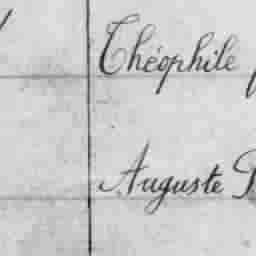 Théophile
Auguste